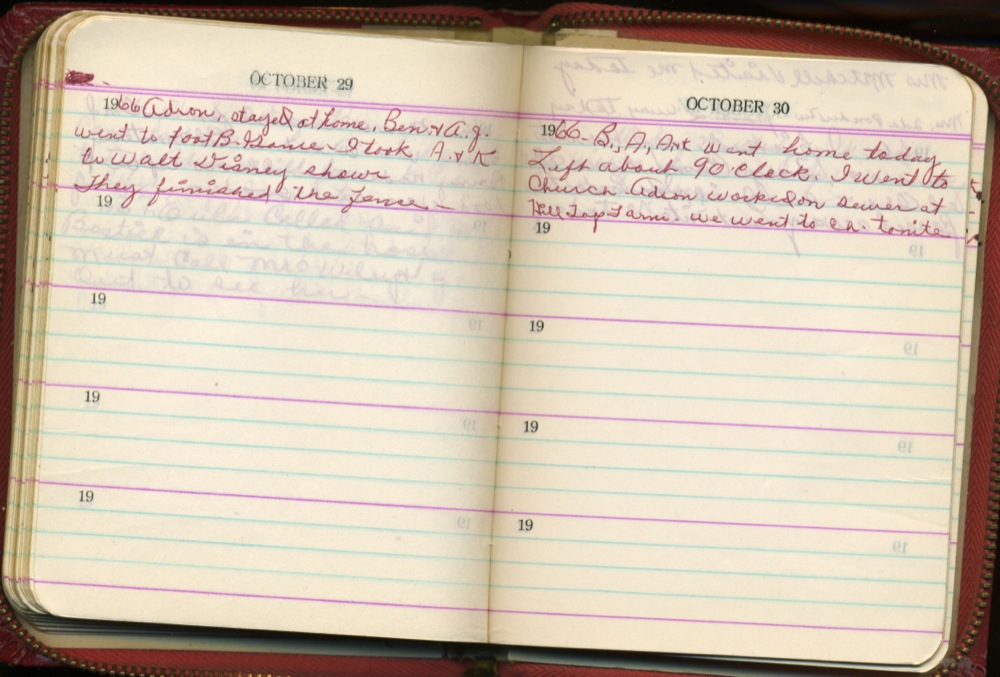 OCTOBER 29
1966 Adron, stayed at home. Ben & A.J.
went to foot B. Game. I took A. & K
to Walt Disney show
They finished the fence. -
19
19
19
19
OCTOBER 30
1966 - B., A, A & K went home today
Left about 9 O clock. I went to
Church Adron worked on sewer at
Hill Top Farm. we went to ch. tonite
19
19
19
19
Mrs Mitchell visited me today